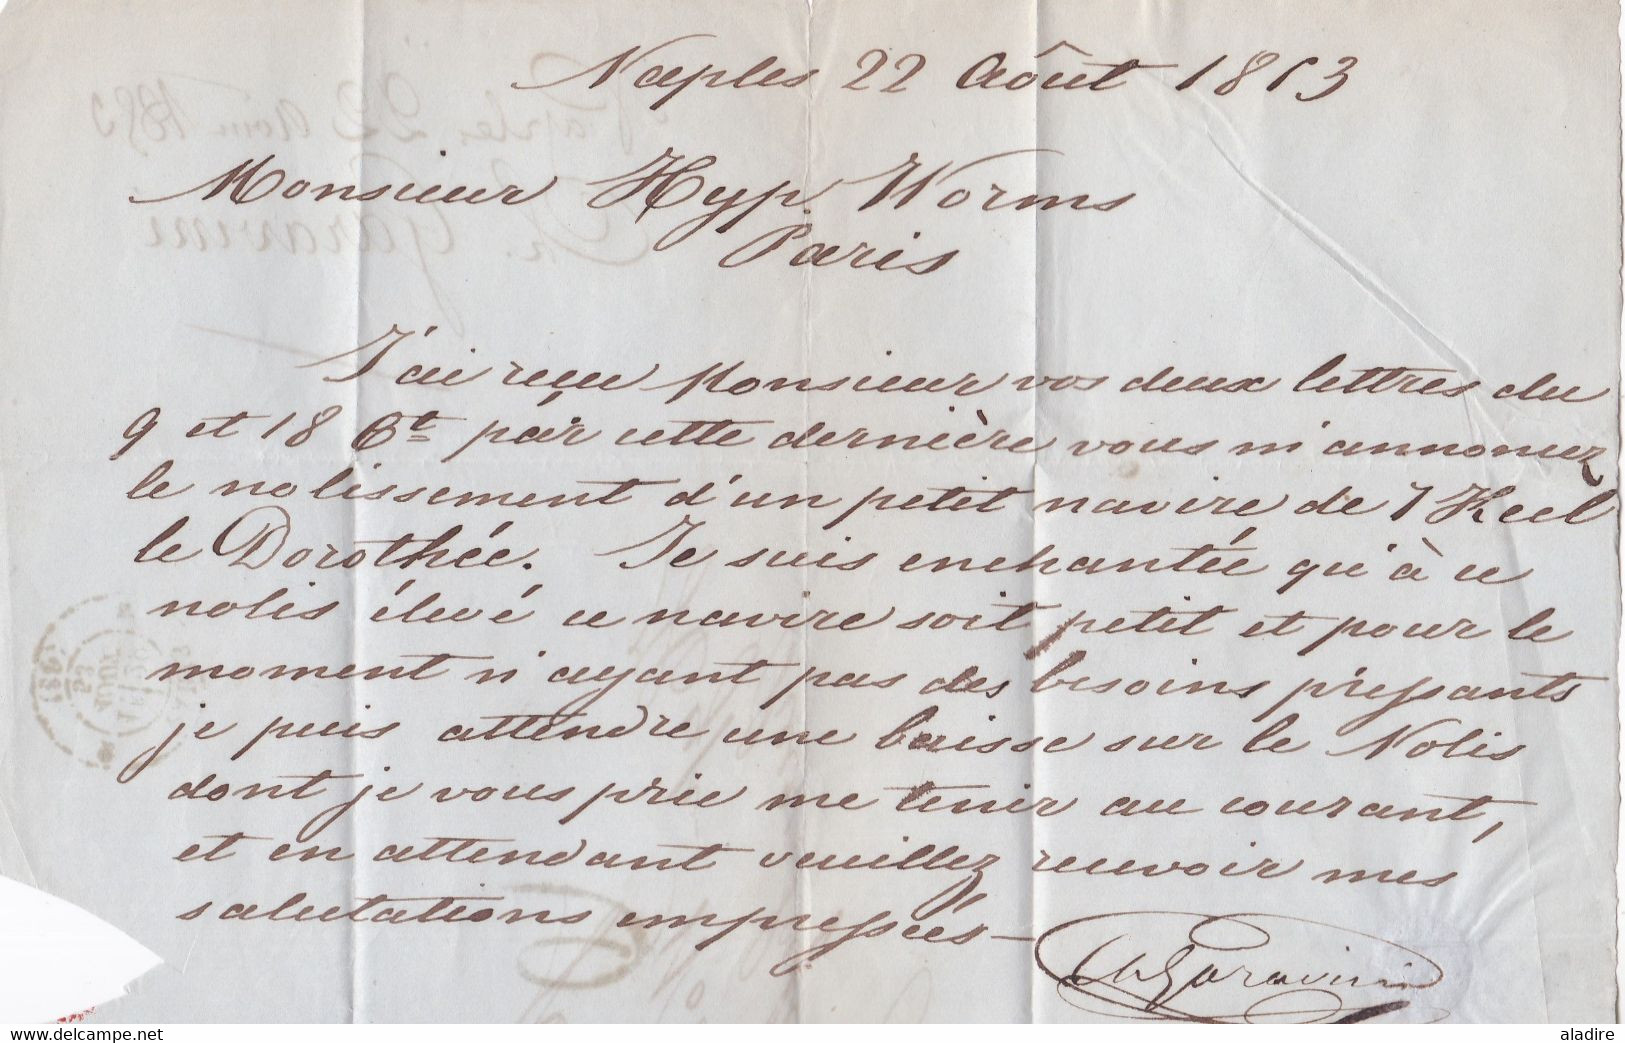 Naples 22 Août 1853
Monsieur Hyp. Worms
Paris
J'ai reçu Monsieur vos deux lettres du
9 et 18 Ct par cette dernière vous m'annoncez
le nolissement d'un petit navire de 7 Keel
le Dorothée. Je suis enchantée qu'à ce
nolis élevé ce navire soit petit et pour le
moment n'ayant pas des besoins pressants
je puis attendre une baisse sur le Nolis
dont je vous prie me tenir au courant,
et en attendant veuillez recevoir mes
salutations empressées —
Ch Garavini
aladire